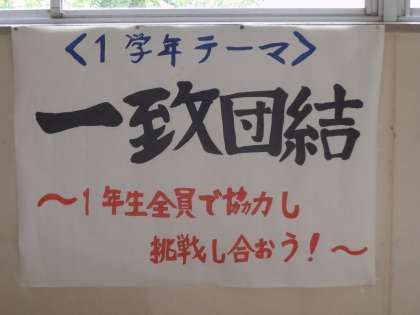 ＜1学年テーマ＞
一致団結
～1年生全員で協力し
挑戦し合おう！～